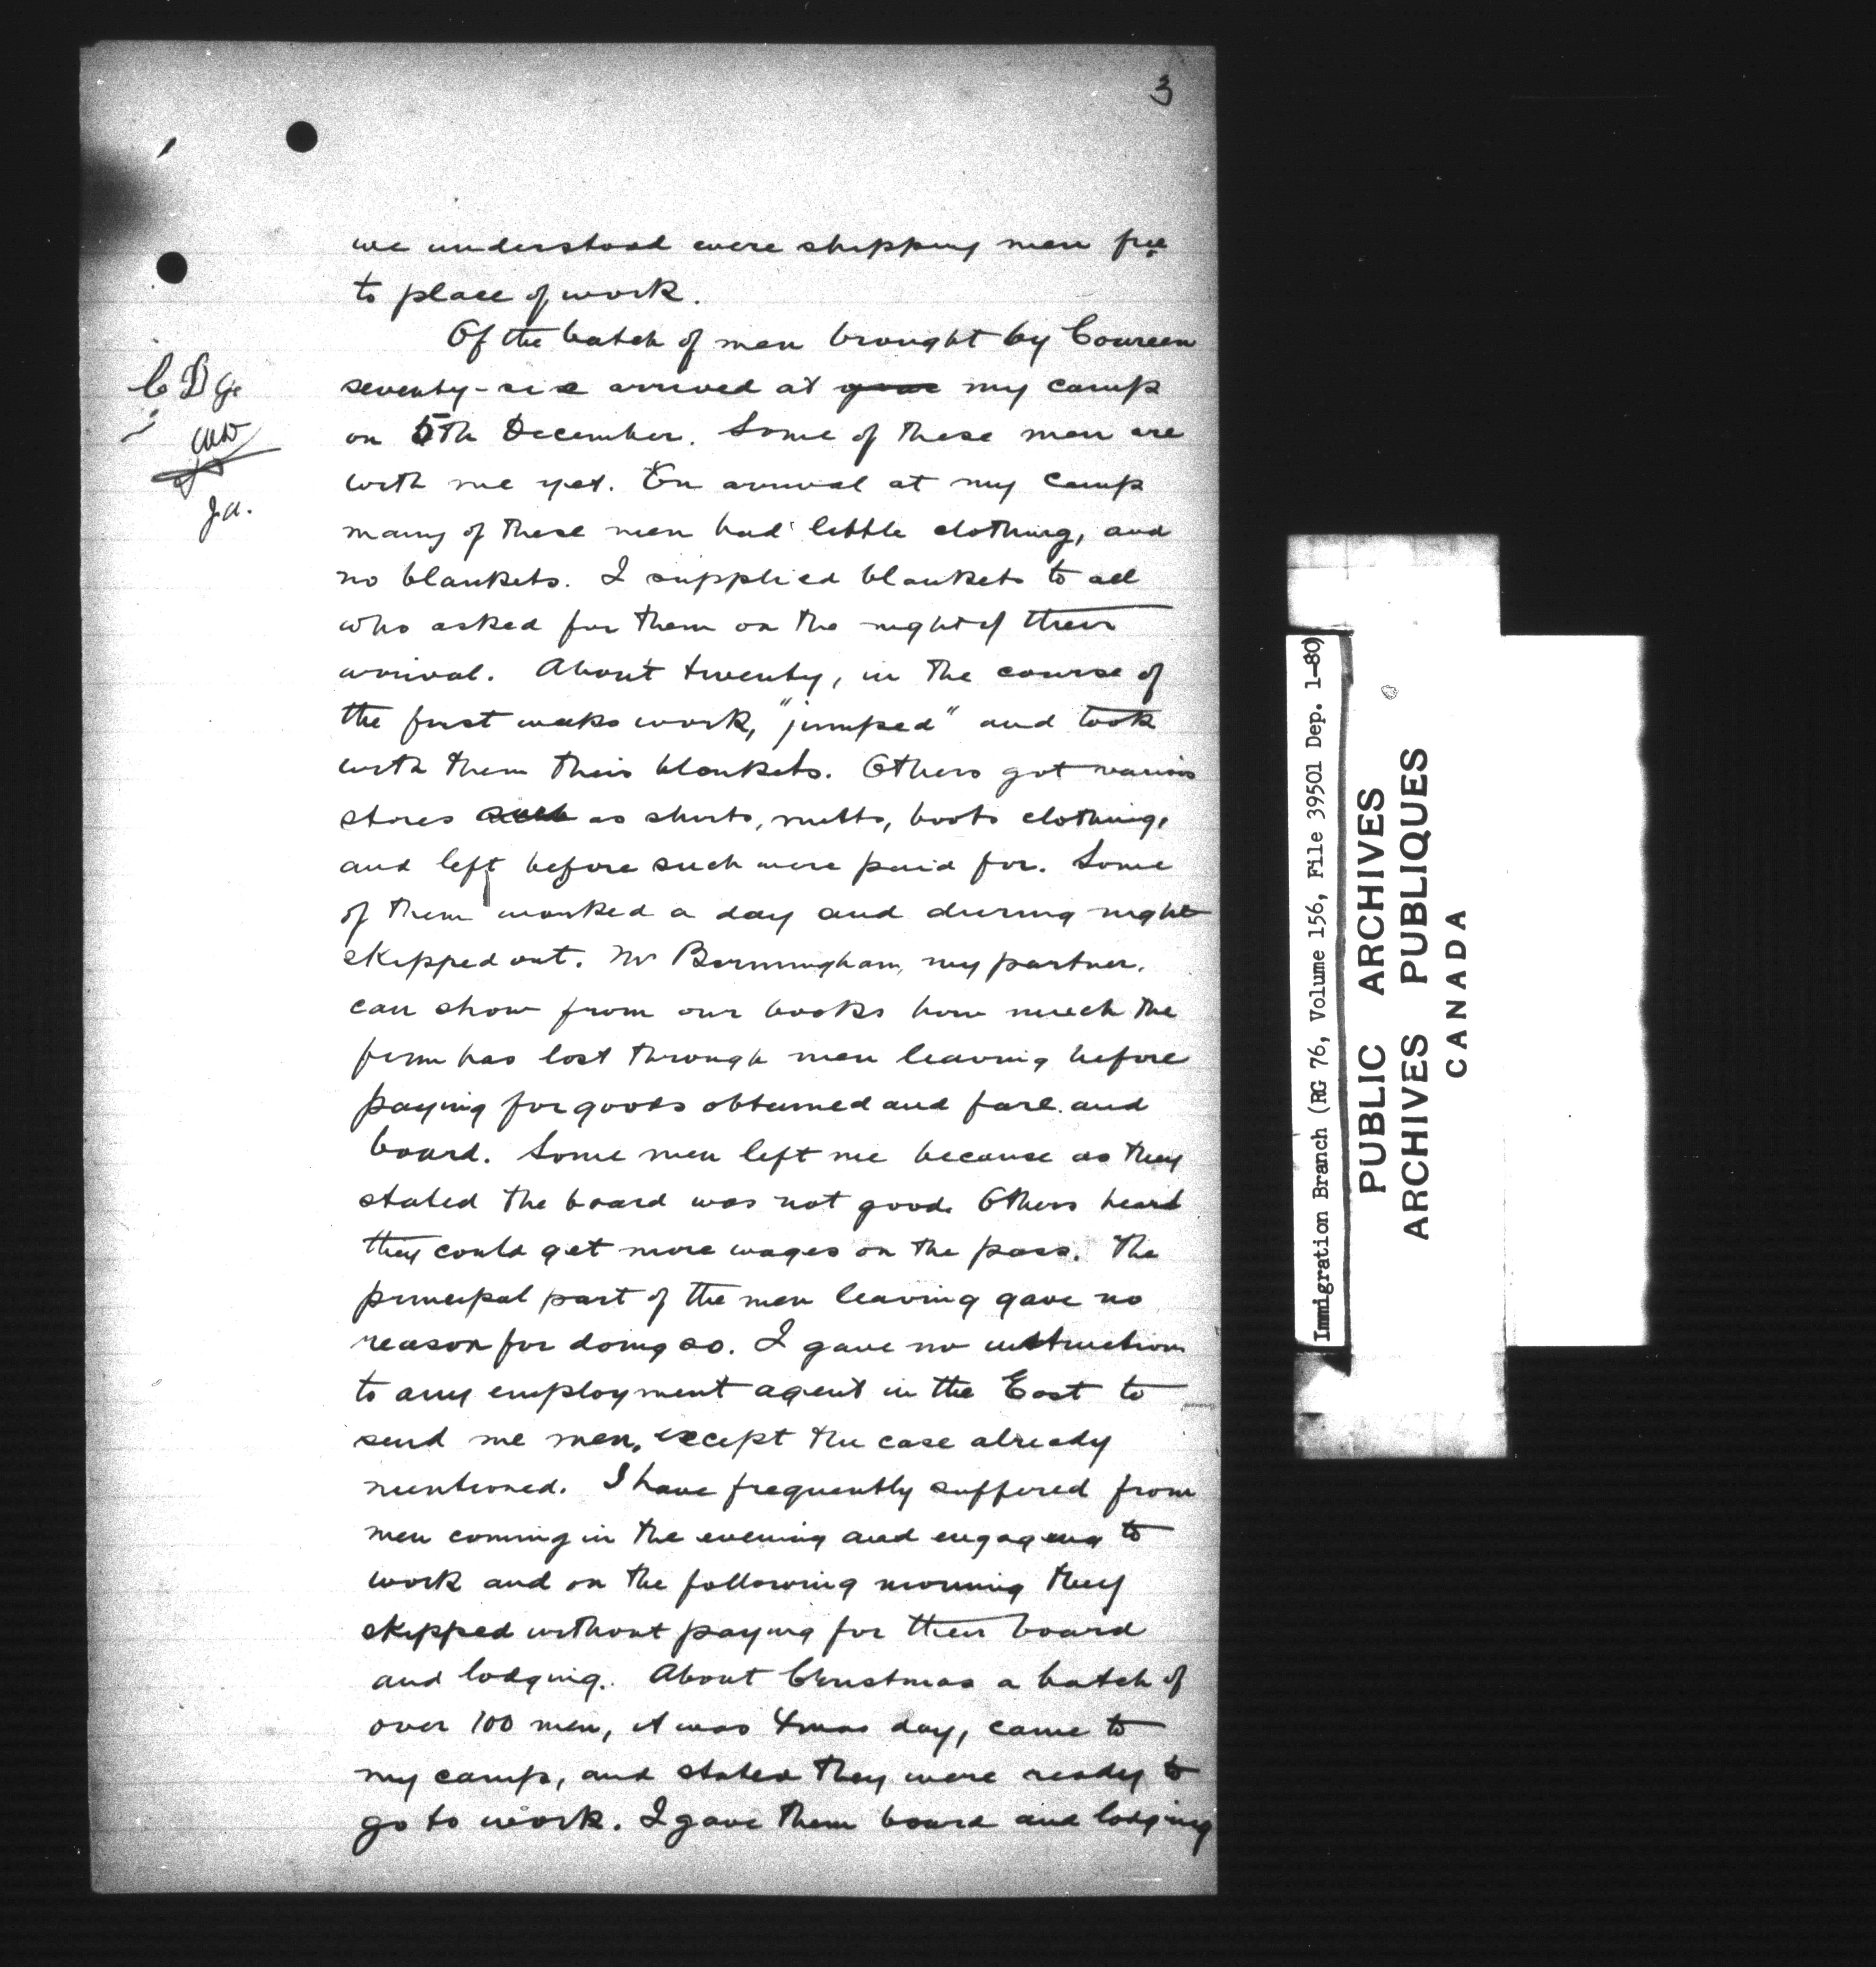 3
we understood were shipping men free
to place of work.
Of the batch of men brought by Coureen
seventy-six arrived at my camp
on 5th December. Some of these men are
with me yet. On arrival at my camp
many of these men had little clothing, and
no blankets. I supplied blankets to all
who asked for them on the night of their
arrival. About twenty, in the course of
the first weeks work, "jumped" and took
with them their blankets. Others got various
stores such as shirts, mitts, boots clothing,
and left before such were paid for. Some
of them worked a day and during night
skipped out. Mr Bermingham, my partner,
can show from our books how much the
firm has lost through men leaving before
paying for goods obtained and fare and
board. Some men left me because as they
stated the board was not good. Others heard
they could get more wages on the pass. The
principal part of the men leaving gave no
reason for doing so. I gave no instructions
to any employment agent in the East to
send me men, except the case already
mentioned. I have frequently suffered from
men coming in the evening and engaging to
work and on the following morning they
skipped without paying for their board
and lodging. About Christmas a batch of
over 100 men, it was Xmas day, came to
my camp, and stated they were ready to
go to work. I gave them board and lodging
J.A.
Immigration Branch (RG 76, Volume 156, File 39501 Dep. 1-80)
PUBLIC ARCHIVES
ARCHIVES PUBLIQUES
CANADA